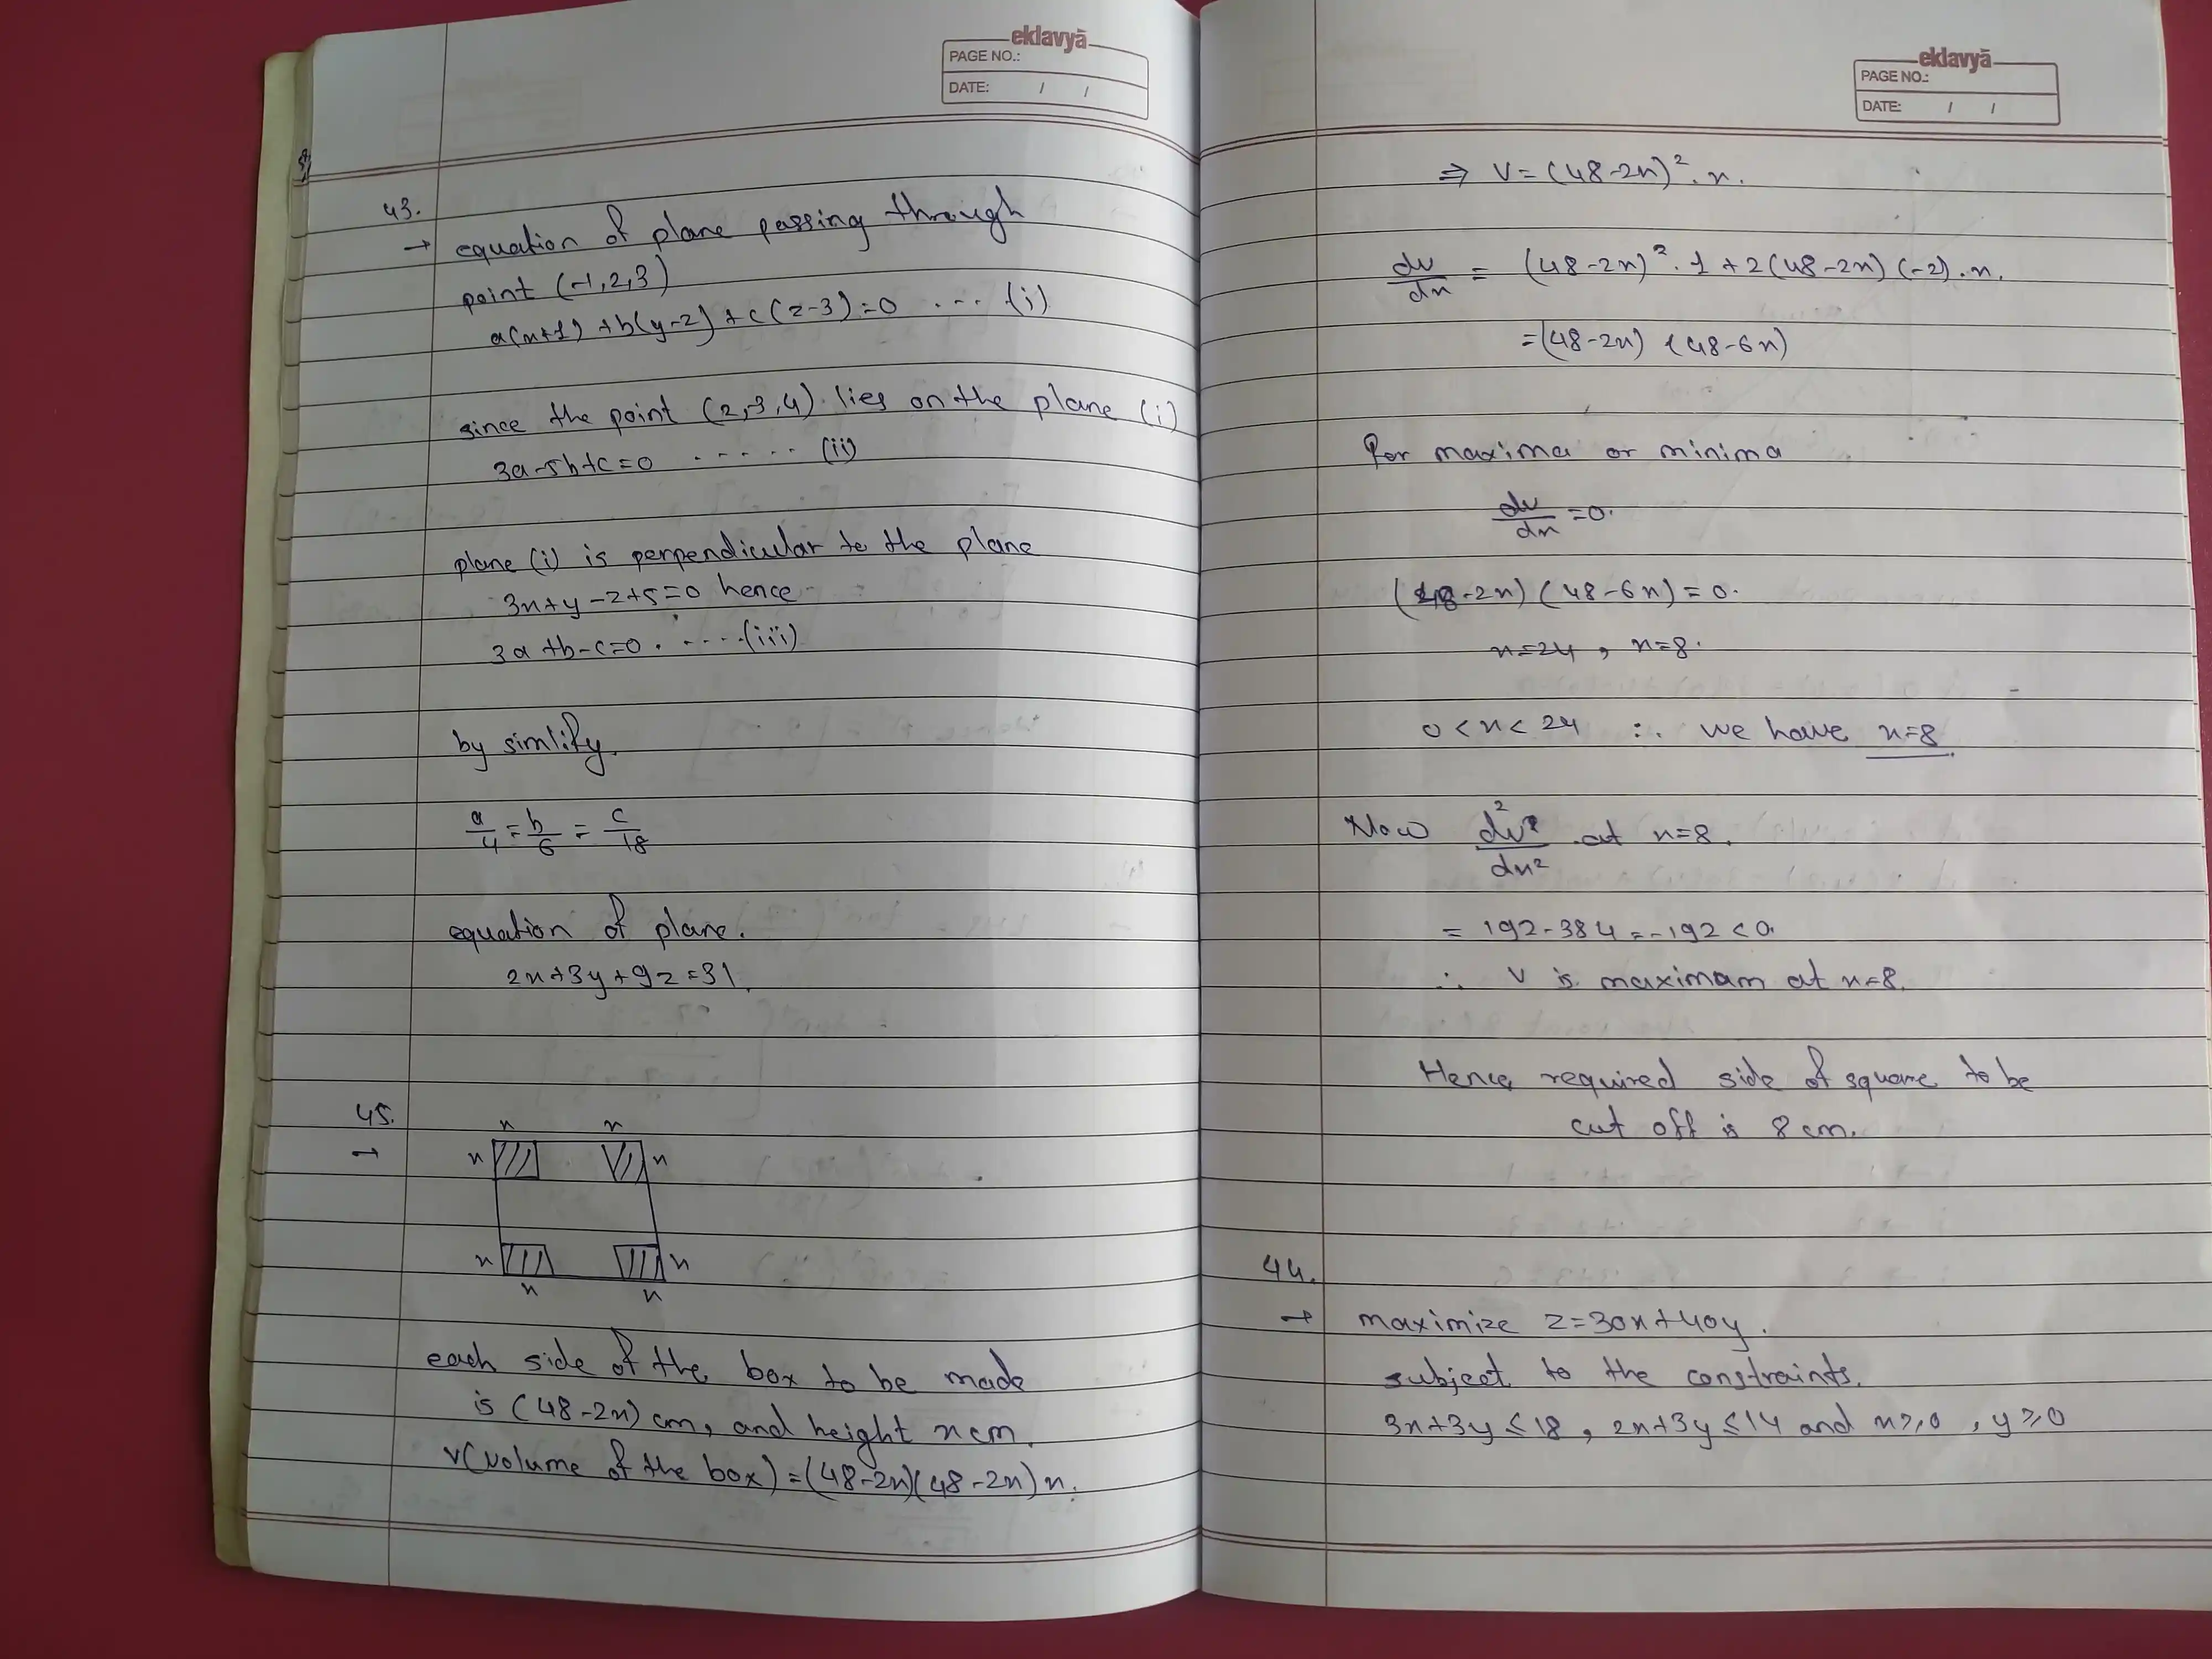 eklavyā
PAGE NO.:
DATE: / /
43.
→ equation of plane passing through
point (-1,2,3)
a(x+1)+b(y-2)+c(z-3)=0 .... (i)
since the point (2,-3,4) lies on the plane (i)
3a-5b+c=0 ...... (ii)
plane (i) is perpendicular to the plane
3x+y-z+5=0 hence
3a+b-c=0. .....(iii)
by simlify.
a/4 = b/6 = c/18
equation of plane.
2x+3y+9z=31.
45.
→
x x
x x
x x
x x
each side of the box to be made
is (48-2x) cm, and height x cm.
V(volume of the box)=(48-2x)(48-2x)x.
eklavyā
PAGE NO.:
DATE: / /
⇒ V=(48-2x)².x.
dv/dx = (48-2x)².1+2(48-2x)(-2).x.
=(48-2x)(48-6x)
For maxima or minima
dv/dx =0.
(48-2x)(48-6x)=0.
x=24, x=8.
0<x<24 ∴ we have x=8
Now d²v/dx² at x=8.
= 192-384=-192<0.
∴ V is maximam at x=8.
Hence required side of square to be
cut off is 8 cm.
44.
→ maximize z=30x+40y.
subject to the constraints.
3x+3y≤18, 2x+3y≤14 and x≥0, y≥0